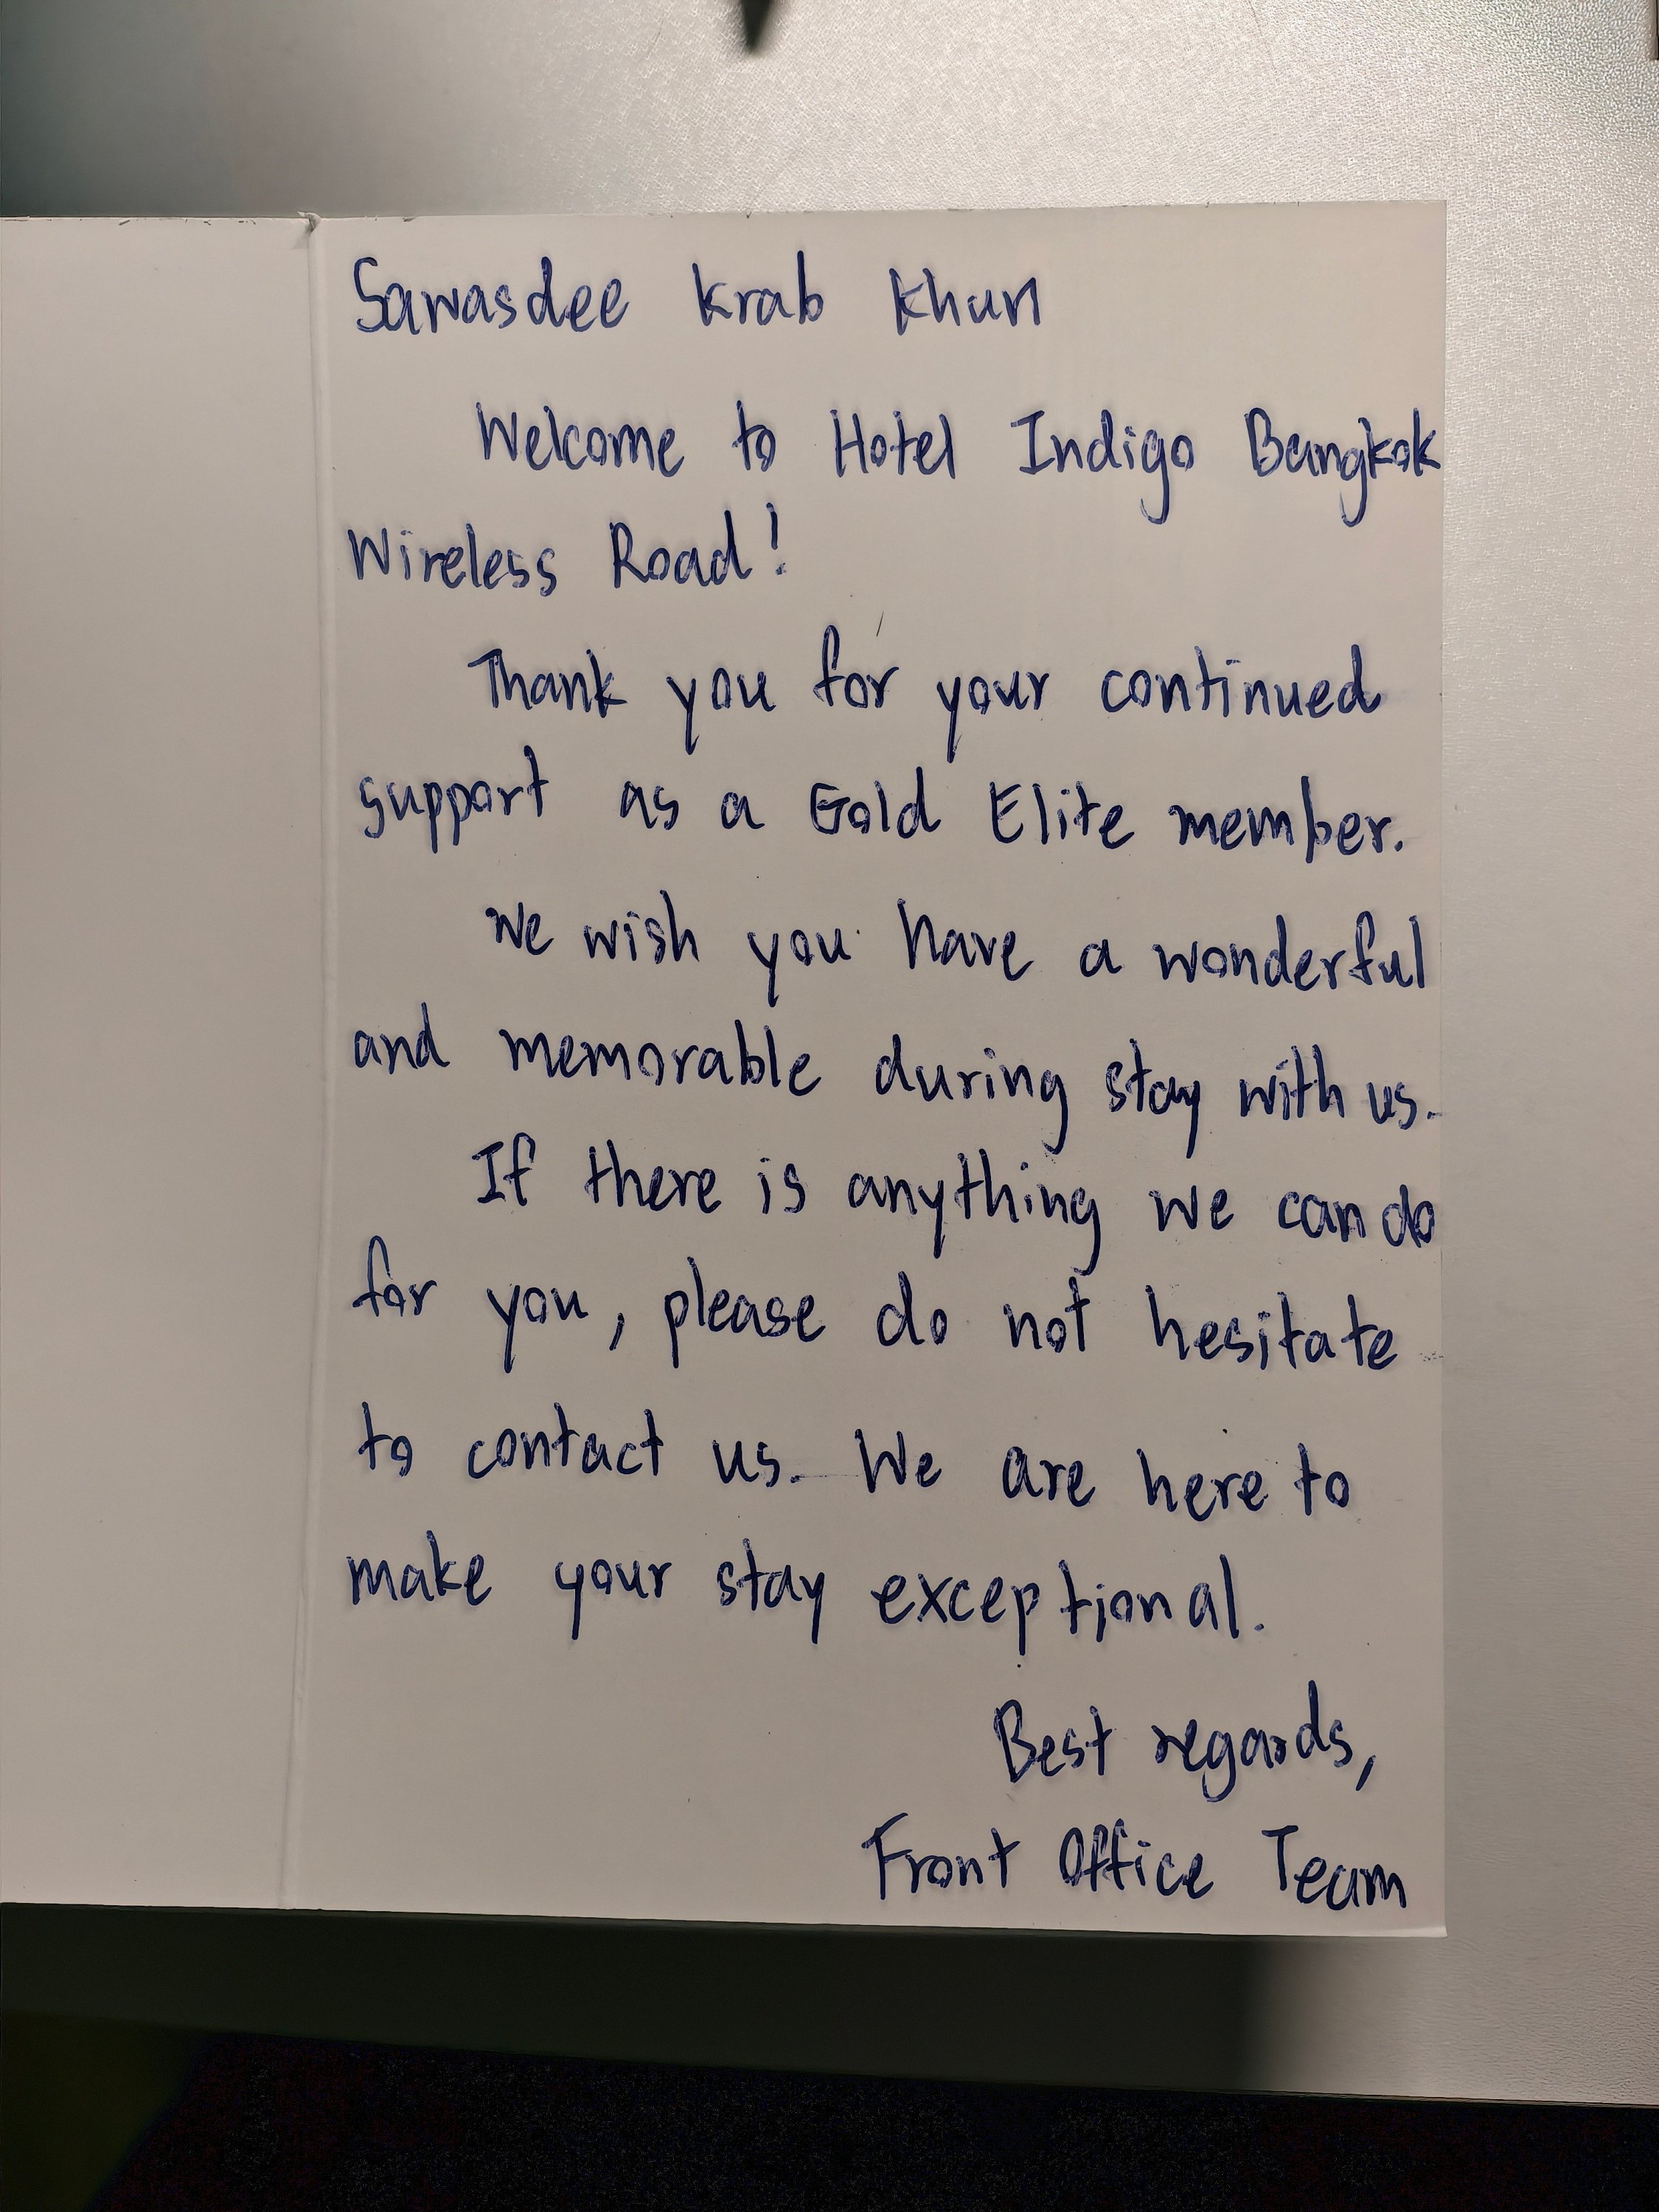 Sawasdee Krab Khun
Welcome to Hotel Indigo Bangkok
Wireless Road!
Thank you for your continued
support as a Gold Elite member.
We wish you have a wonderful
and memorable during stay with us.
If there is anything we can do
for you, please do not hesitate
to contact us. We are here to
make your stay exceptional.
Best regards,
Front Office Team